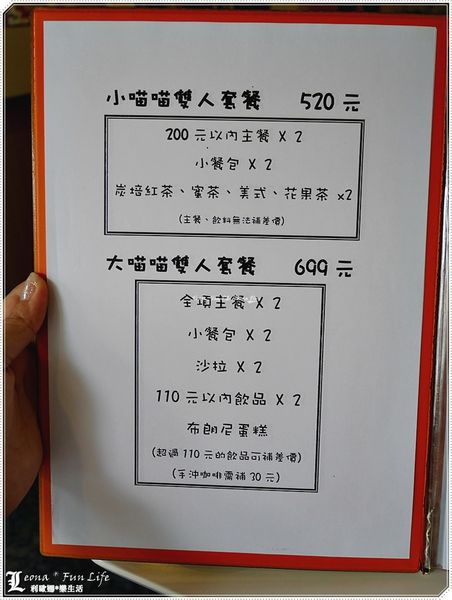 小喵喵雙人套餐 520 元
200 元以內主餐 X 2
小餐包 X 2
炭焙紅茶、蜜茶、美式、花果茶 x2
(主餐、飲料無法補差價)
大喵喵雙人套餐 699 元
全項主餐 X 2
小餐包 X 2
沙拉 X 2
110 元以內飲品 X 2
布朗尼蛋糕
(超過 110 元的飲品可補差價)
(手沖咖啡需補 30 元)
Leona * Fun Life
利歐娜*樂生活